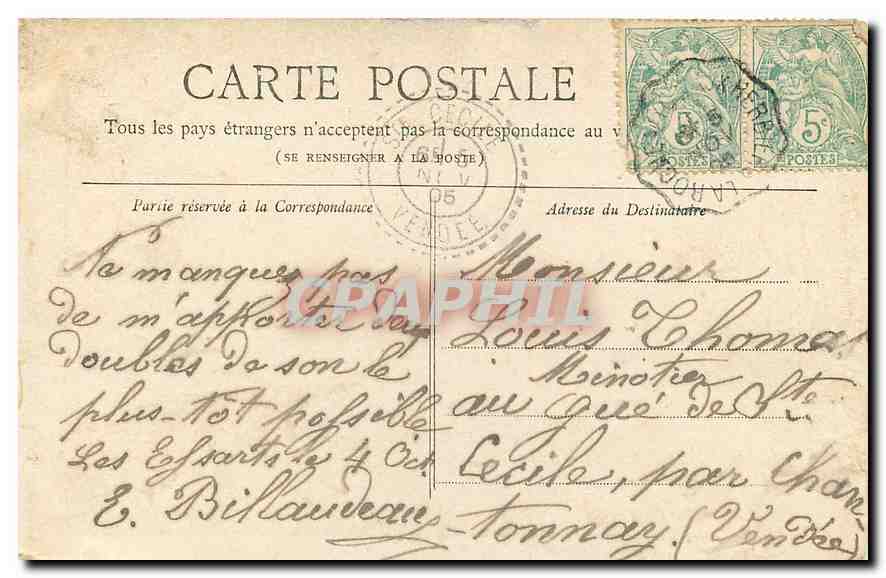 CARTE POSTALE
Tous les pays étrangers n'acceptent pas la correspondance au v
(SE RENSEIGNER A LA POSTE)
Partie réservée à la Correspondance
Adresse du Destinataire
Ne manquez pas
de m'apporter deux
doubles de son le
plus-tôt possible
Les Essarts le 4 Oct
E. Billaudeau
Monsieur
Louis Thomas
Minotier
au gué de Ste
Cecile, par Chan-
-tonnay (Vendée)
STE CECILE
NOV
05
VENDÉE
5c
POSTES
5c
POSTES
LA ROCHE
CPAPHIL